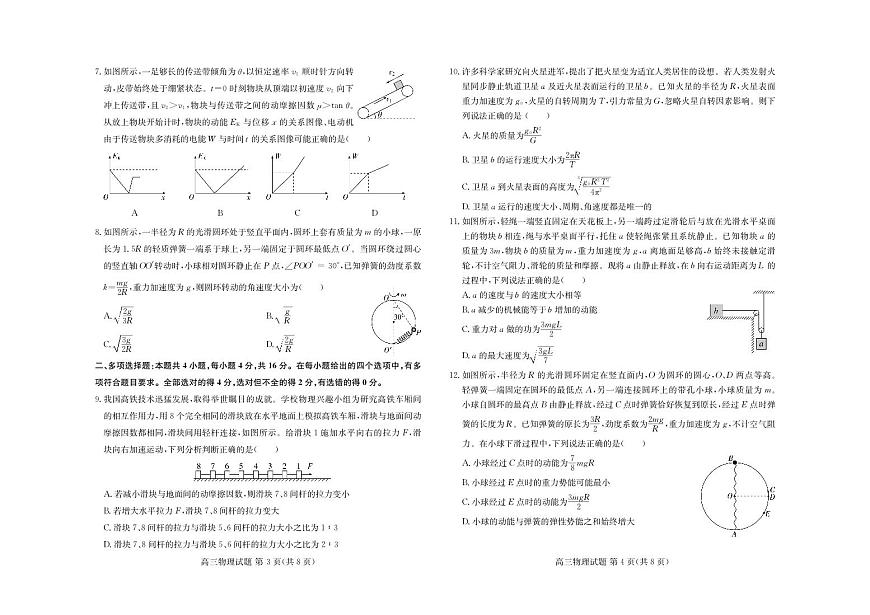 7. 如图所示,一足够长的传送带倾角为 θ,以恒定速率 v₁ 顺时针方向转
动,皮带始终处于绷紧状态。t=0 时刻物块从顶端以初速度 v₂ 向下
冲上传送带,且 v₂>v₁,物块与传送带之间的动摩擦因数 μ>tan θ。
从放上物块开始计时,物块的动能 Eₖ 与位移 x 的关系图像、电动机
由于传送物块多消耗的电能 W 与时间 t 的关系图像可能正确的是( )
v₂
v₁
θ
Eₖ
O
x
A
Eₖ
O
x
B
W
O
t
C
W
O
t
D
8. 如图所示,一半径为 R 的光滑圆环处于竖直平面内,圆环上套有质量为 m 的小球,一原
长为 1.5R 的轻质弹簧一端系于球上,另一端固定于圆环最低点 O′。当圆环绕过圆心
的竖直轴 OO′转动时,小球相对圆环静止在 P 点,∠POO′ = 30°,已知弹簧的劲度系数
k=mg/2R,重力加速度为 g,则圆环转动的角速度大小为( )
A. √(2g/3R)
B. √(g/R)
C. √(3g/2R)
D. √(2g/R)
O
ω
30°
P
O′
二、多项选择题:本题共 4 小题,每小题 4 分,共 16 分。在每小题给出的四个选项中,有多
项符合题目要求。全部选对的得 4 分,选对但不全的得 2 分,有选错的得 0 分。
9. 我国高铁技术迅猛发展,取得举世瞩目的成就。学校物理兴趣小组为研究高铁车厢间
的相互作用力,用 8 个完全相同的滑块放在水平地面上模拟高铁车厢,滑块与地面间动
摩擦因数都相同,滑块间用轻杆连接,如图所示。给滑块 1 施加水平向右的拉力 F,滑
块向右加速运动,下列分析判断正确的是( )
8 7 6 5 4 3 2 1 F
A. 若减小滑块与地面间的动摩擦因数,则滑块 7、8 间杆的拉力变小
B. 若增大水平拉力 F,滑块 7、8 间杆的拉力变大
C. 滑块 7、8 间杆的拉力与滑块 5、6 间杆的拉力大小之比为 1∶3
D. 滑块 7、8 间杆的拉力与滑块 5、6 间杆的拉力大小之比为 2∶3
高三物理试题 第 3 页(共 8 页)
10. 许多科学家研究向火星进军,提出了把火星变为适宜人类居住的设想。若人类发射火
星同步静止轨道卫星 a 及近火星表面运行的卫星 b。已知火星的半径为 R,火星表面
重力加速度为 g₀,火星的自转周期为 T,引力常量为 G,忽略火星自转因素影响。则下
列说法正确的是( )
A. 火星的质量为g₀R²/G
B. 卫星 b 的运行速度大小为2πR/T
C. 卫星 a 到火星表面的高度为³√(g₀R²T²/4π²)
D. 卫星 a 运行的速度大小、周期、角速度都是唯一的
11. 如图所示,轻绳一端竖直固定在天花板上,另一端跨过定滑轮后与放在光滑水平桌面
上的物块 b 相连,绳与水平桌面平行,托住 a 使轻绳张紧且系统静止。已知物块 a 的
质量为 3m,物块 b 的质量为 m,重力加速度为 g,a 离地面足够高,b 始终未接触定滑
轮,不计空气阻力、滑轮的质量和摩擦。现将 a 由静止释放,在 b 向右运动距离为 L 的
过程中,下列说法正确的是( )
A. a 的速度与 b 的速度大小相等
B. a 减少的机械能等于 b 增加的动能
C. 重力对 a 做的功为3mgL/2
D. a 的最大速度为√(3gL/7)
b
a
12. 如图所示,半径为 R 的光滑圆环固定在竖直面内,O 为圆环的圆心,O、D 两点等高。
轻弹簧一端固定在圆环的最低点 A,另一端连接圆环上的带孔小球,小球质量为 m。
小球自圆环的最高点 B 由静止释放,经过 C 点时弹簧恰好恢复到原长,经过 E 点时弹
簧的长度为 R。已知弹簧的原长为3R/2,劲度系数为2mg/R,重力加速度为 g,不计空气阻
力。在小球下滑过程中,下列说法正确的是( )
A. 小球经过 C 点时的动能为7/8 mgR
B. 小球经过 E 点时的重力势能可能最小
C. 小球经过 E 点时的动能为3mgR/2
D. 小球的动能与弹簧的弹性势能之和始终增大
B
O
C
D
E
A
高三物理试题 第 4 页(共 8 页)